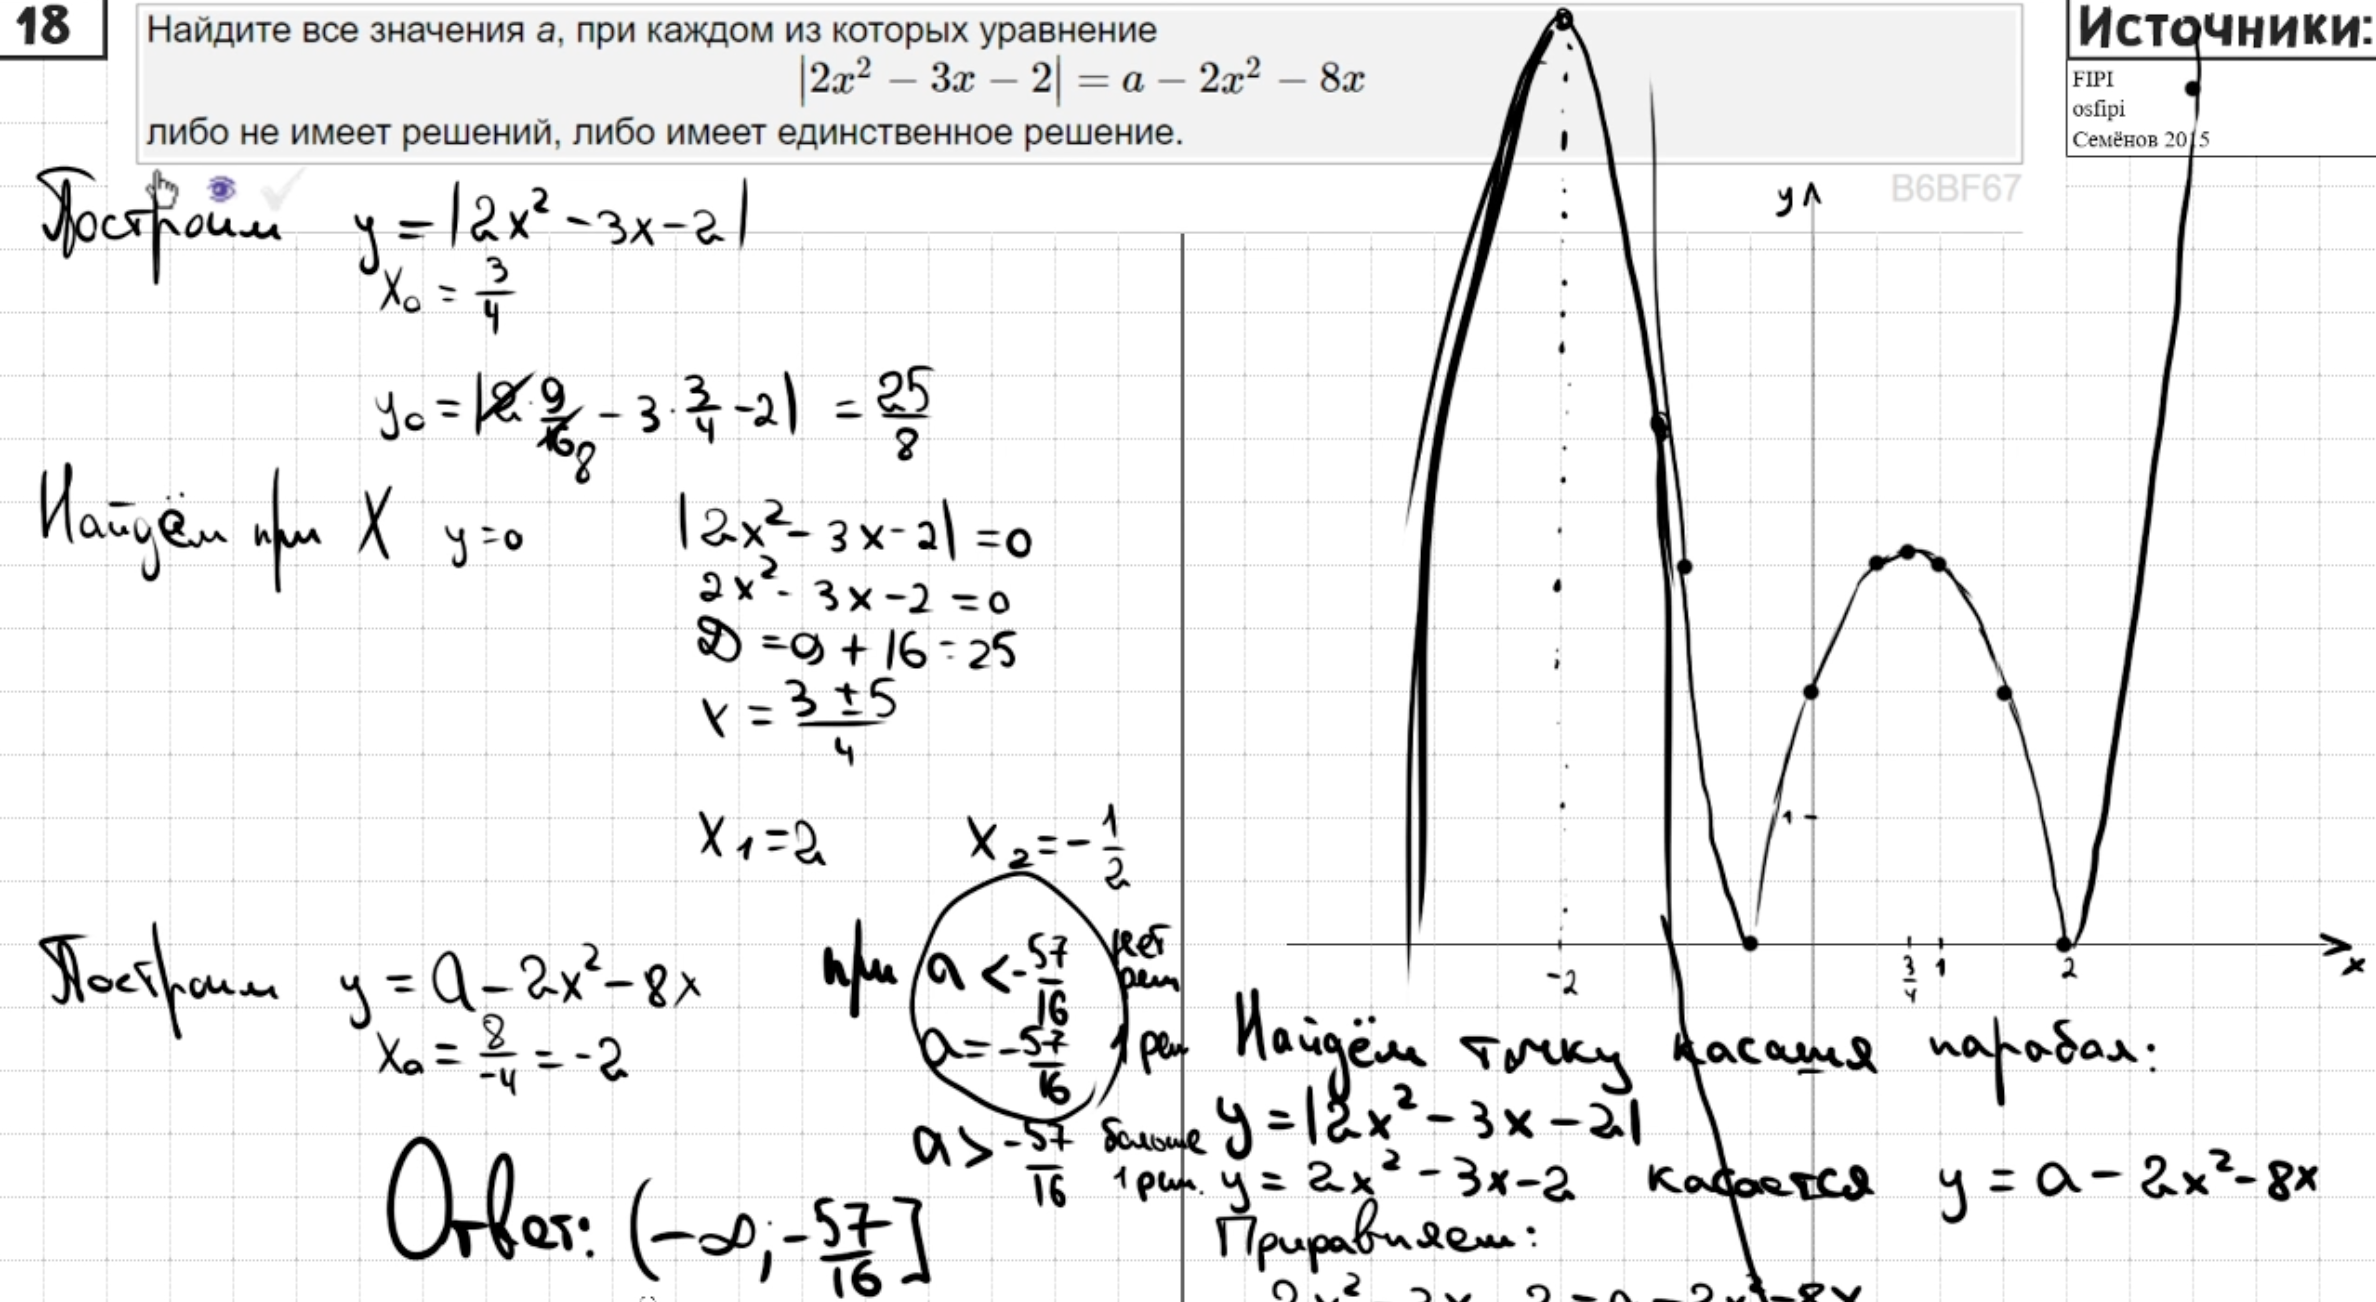 18
Найдите все значения a, при каждом из которых уравнение
|2x² − 3x − 2| = a − 2x² − 8x
либо не имеет решений, либо имеет единственное решение.
Источники:
FIPI
osfipi
Семёнов 2015
B6BF67
Построим y = |2x² - 3x - 2|
x₀ = 3/4
y₀ = |2 · 9/16 8 - 3 · 3/4 - 2| = 25/8
Найдём при X y = 0 |2x² - 3x - 2| = 0
2x² - 3x - 2 = 0
D = 9 + 16 = 25
x = (3 ± 5)/4
x₁ = 2 x₂ = -1/2
Построим y = a - 2x² - 8x
x₀ = 8/-4 = -2
при a < -57/16 нет реш
a = -57/16 1 реш
a > -57/16 больше 1 реш.
Ответ: (-∞; -57/16]
y
1
-2
3/4
1
2
x
Найдём точку касания парабол:
y = |2x² - 3x - 2|
y = 2x² - 3x - 2 касается y = a - 2x² - 8x
Приравняем:
2x² - 3x - 2 = a - 2x² - 8x